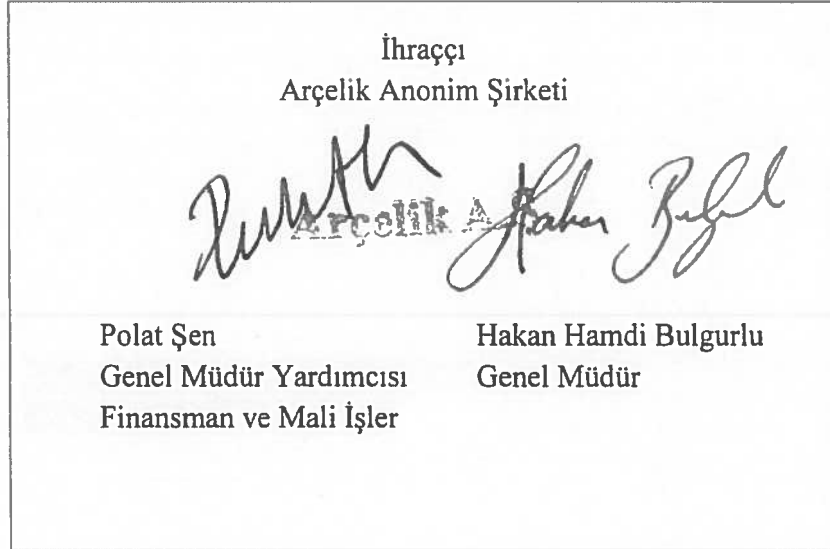 İhraççı
Arçelik Anonim Şirketi
Arçelik A.Ş.
Polat Şen
Genel Müdür Yardımcısı
Finansman ve Mali İşler
Hakan Hamdi Bulgurlu
Genel Müdür